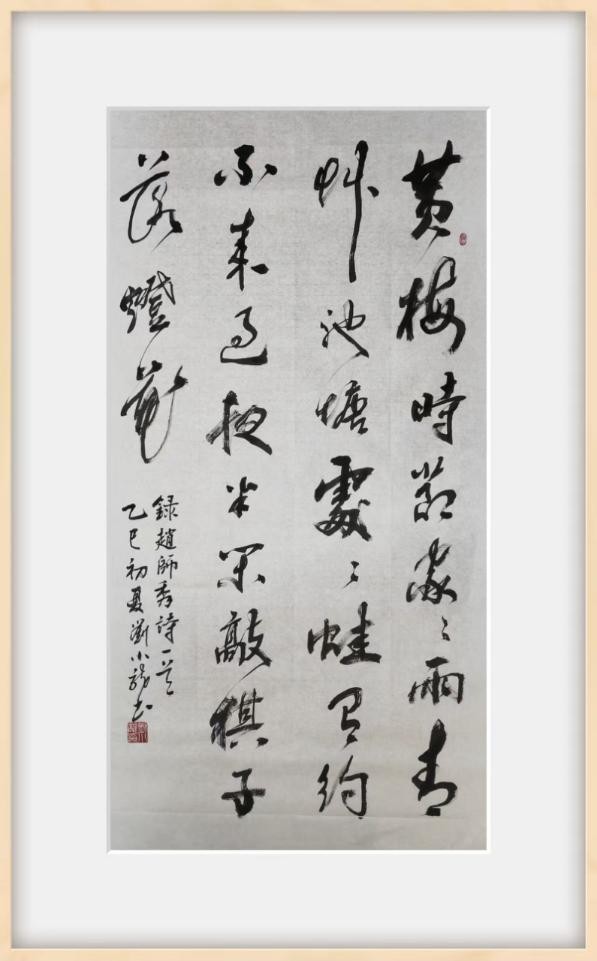 黄梅時節家〻雨青
艸池塘處〻蛙有約
不来過夜半閑敲棋子
落燈花
録趙師秀詩一首
乙巳初夏劉小書